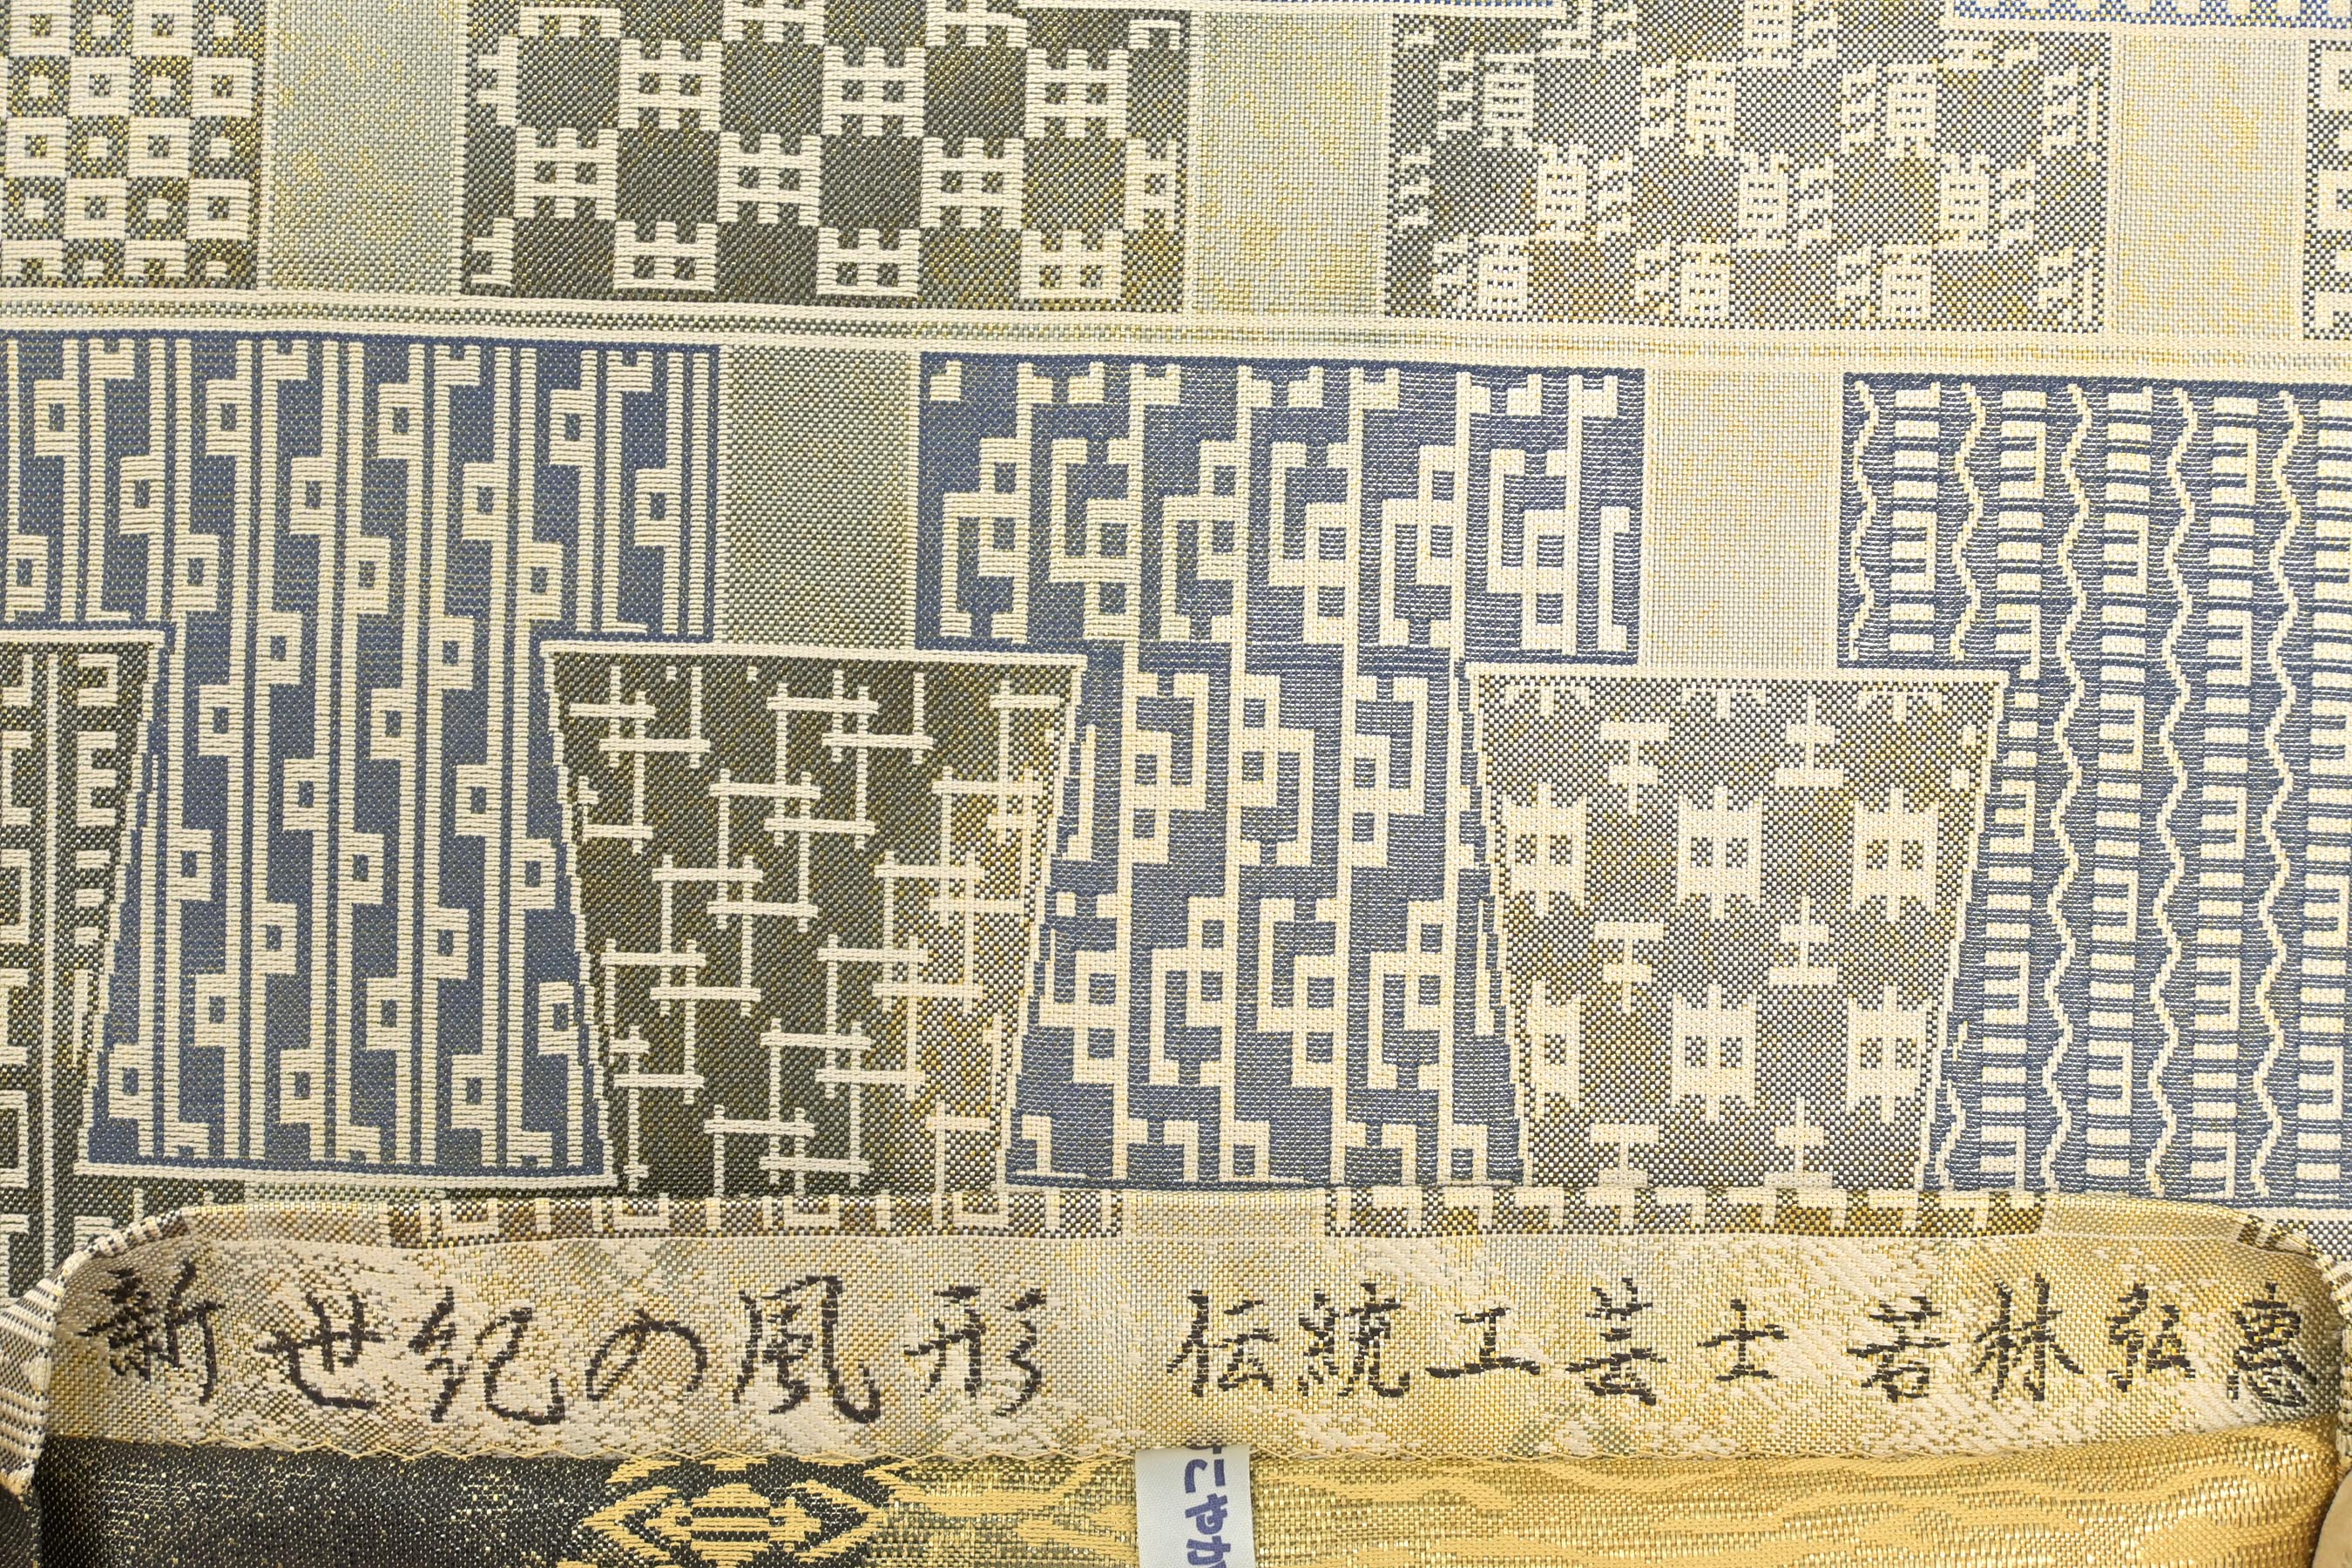 新世紀の風形 伝統工芸士 若林弘惠
こやか